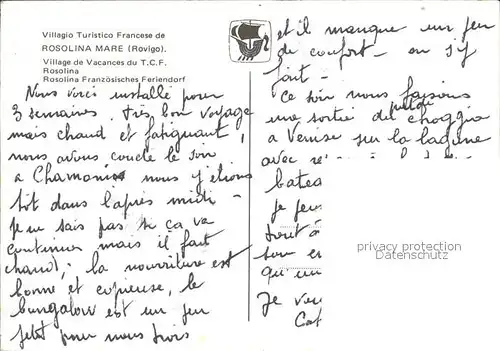 Villagio Turistico Francese de
ROSOLINA MARE (Rovigo).
Village de Vacances du T.C.F.
Rosolina
Rosolina Französisches Feriendorf
Nous voici installé pour
3 semaines. Très bon voyage
mais chaud et fatiguant,
nous avons couché le soir
a Chamonix nous y étions
tôt dans l'après midi -
Je ne sais pas si ça va
continuer mais il fait
chaud; la nourriture est
bonne et copieuse, le
bungalow est un peu
petit pour nous trois
et il manque un peu
de confort - on s'y
fait -
Ce soir nous faisons
une sortie de choggia
a Venise sur la lagune
avec
batea
je
tout a
son
qu'un
Je
privacy protection
Datenschutz